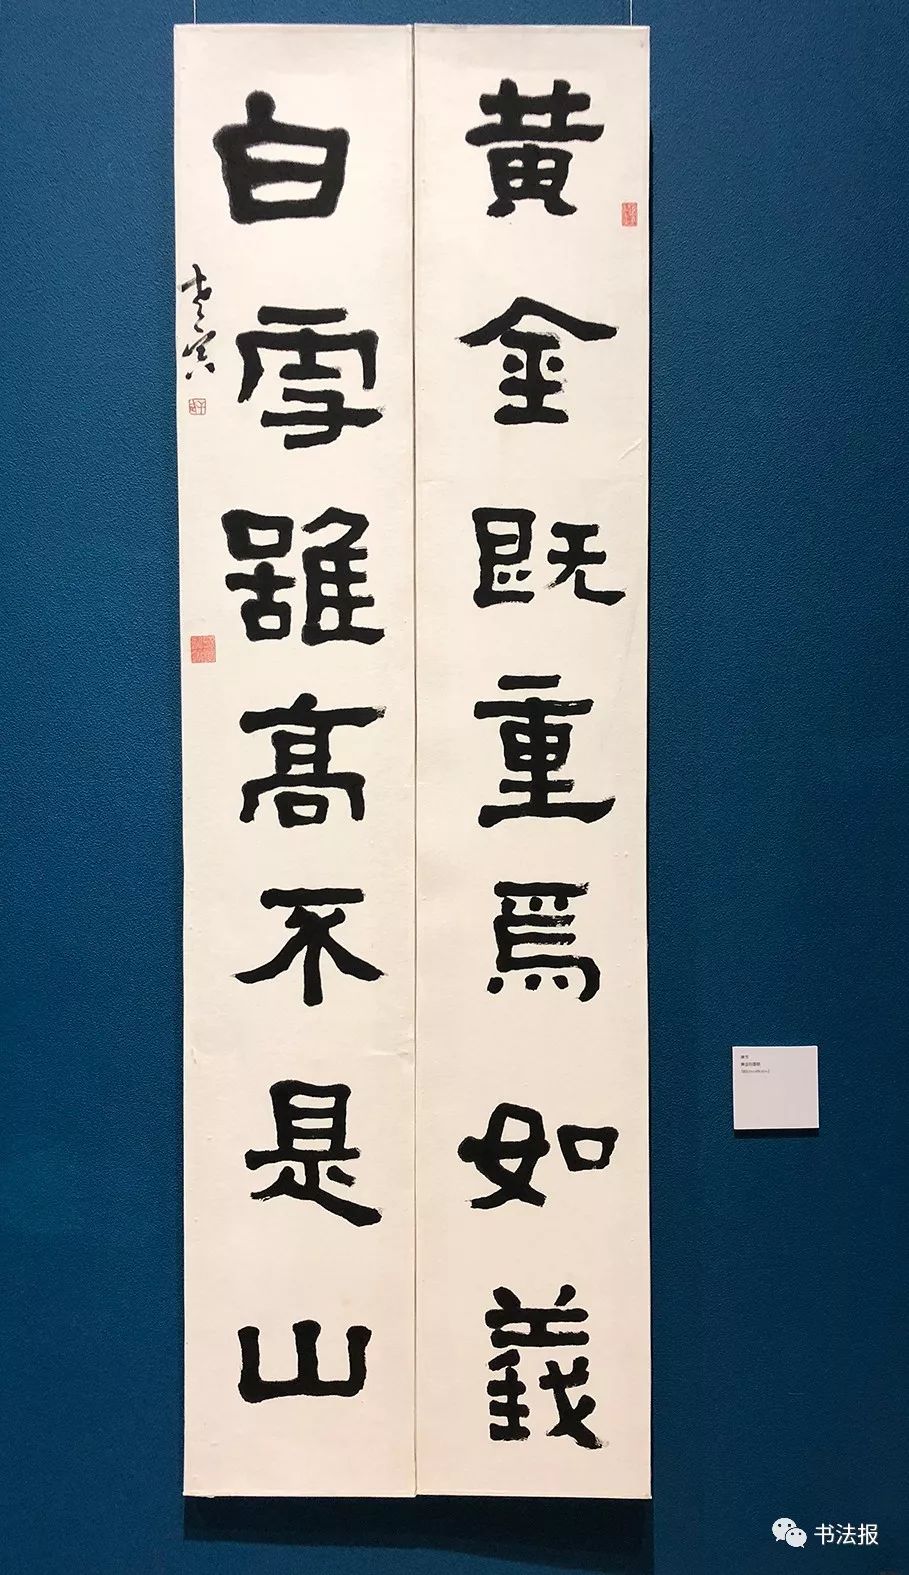 黄金既重焉如義
白雪雖高不是山
书法报